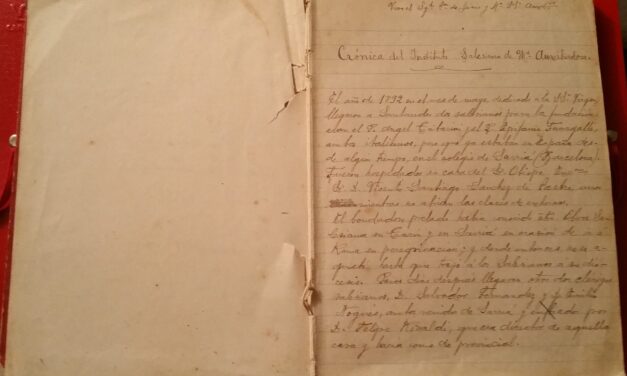 Crónica del Instituto Salesiano de Mª Auxiliadora.
El año de 1892 en el mes de mayo, dedicado a la Sma Virgen,
llegaron a Santander dos salesianos para la fundación
eran el P. Angel y el P. Epifanio
ambos italianos, pues que ya estaban en España des-
de algún tiempo, en el colegio de Sarriá (Barcelona).
Fueron hospedados en casa del Sr. Obispo
D. Vicente Santiago Sanchez de Castro,
mientras se abrían las clases de externos.
El bondadoso prelado había conocido esta Obra Sa-
lesiana en Turín y en Sarriá en ocasión de ir a
Roma en peregrinación; y desde entonces no se a-
quietó hasta que trajo a los Salesianos a su dió-
cesis. Pocos días después llegaron otros dos clérigos
salesianos, D. Salvador Fernandez y D. Emilio
Nogués, ambos venidos de Sarriá y enviados por
D. Felipe Rinaldi, que era director de aquella
casa y hacía como de provincial.